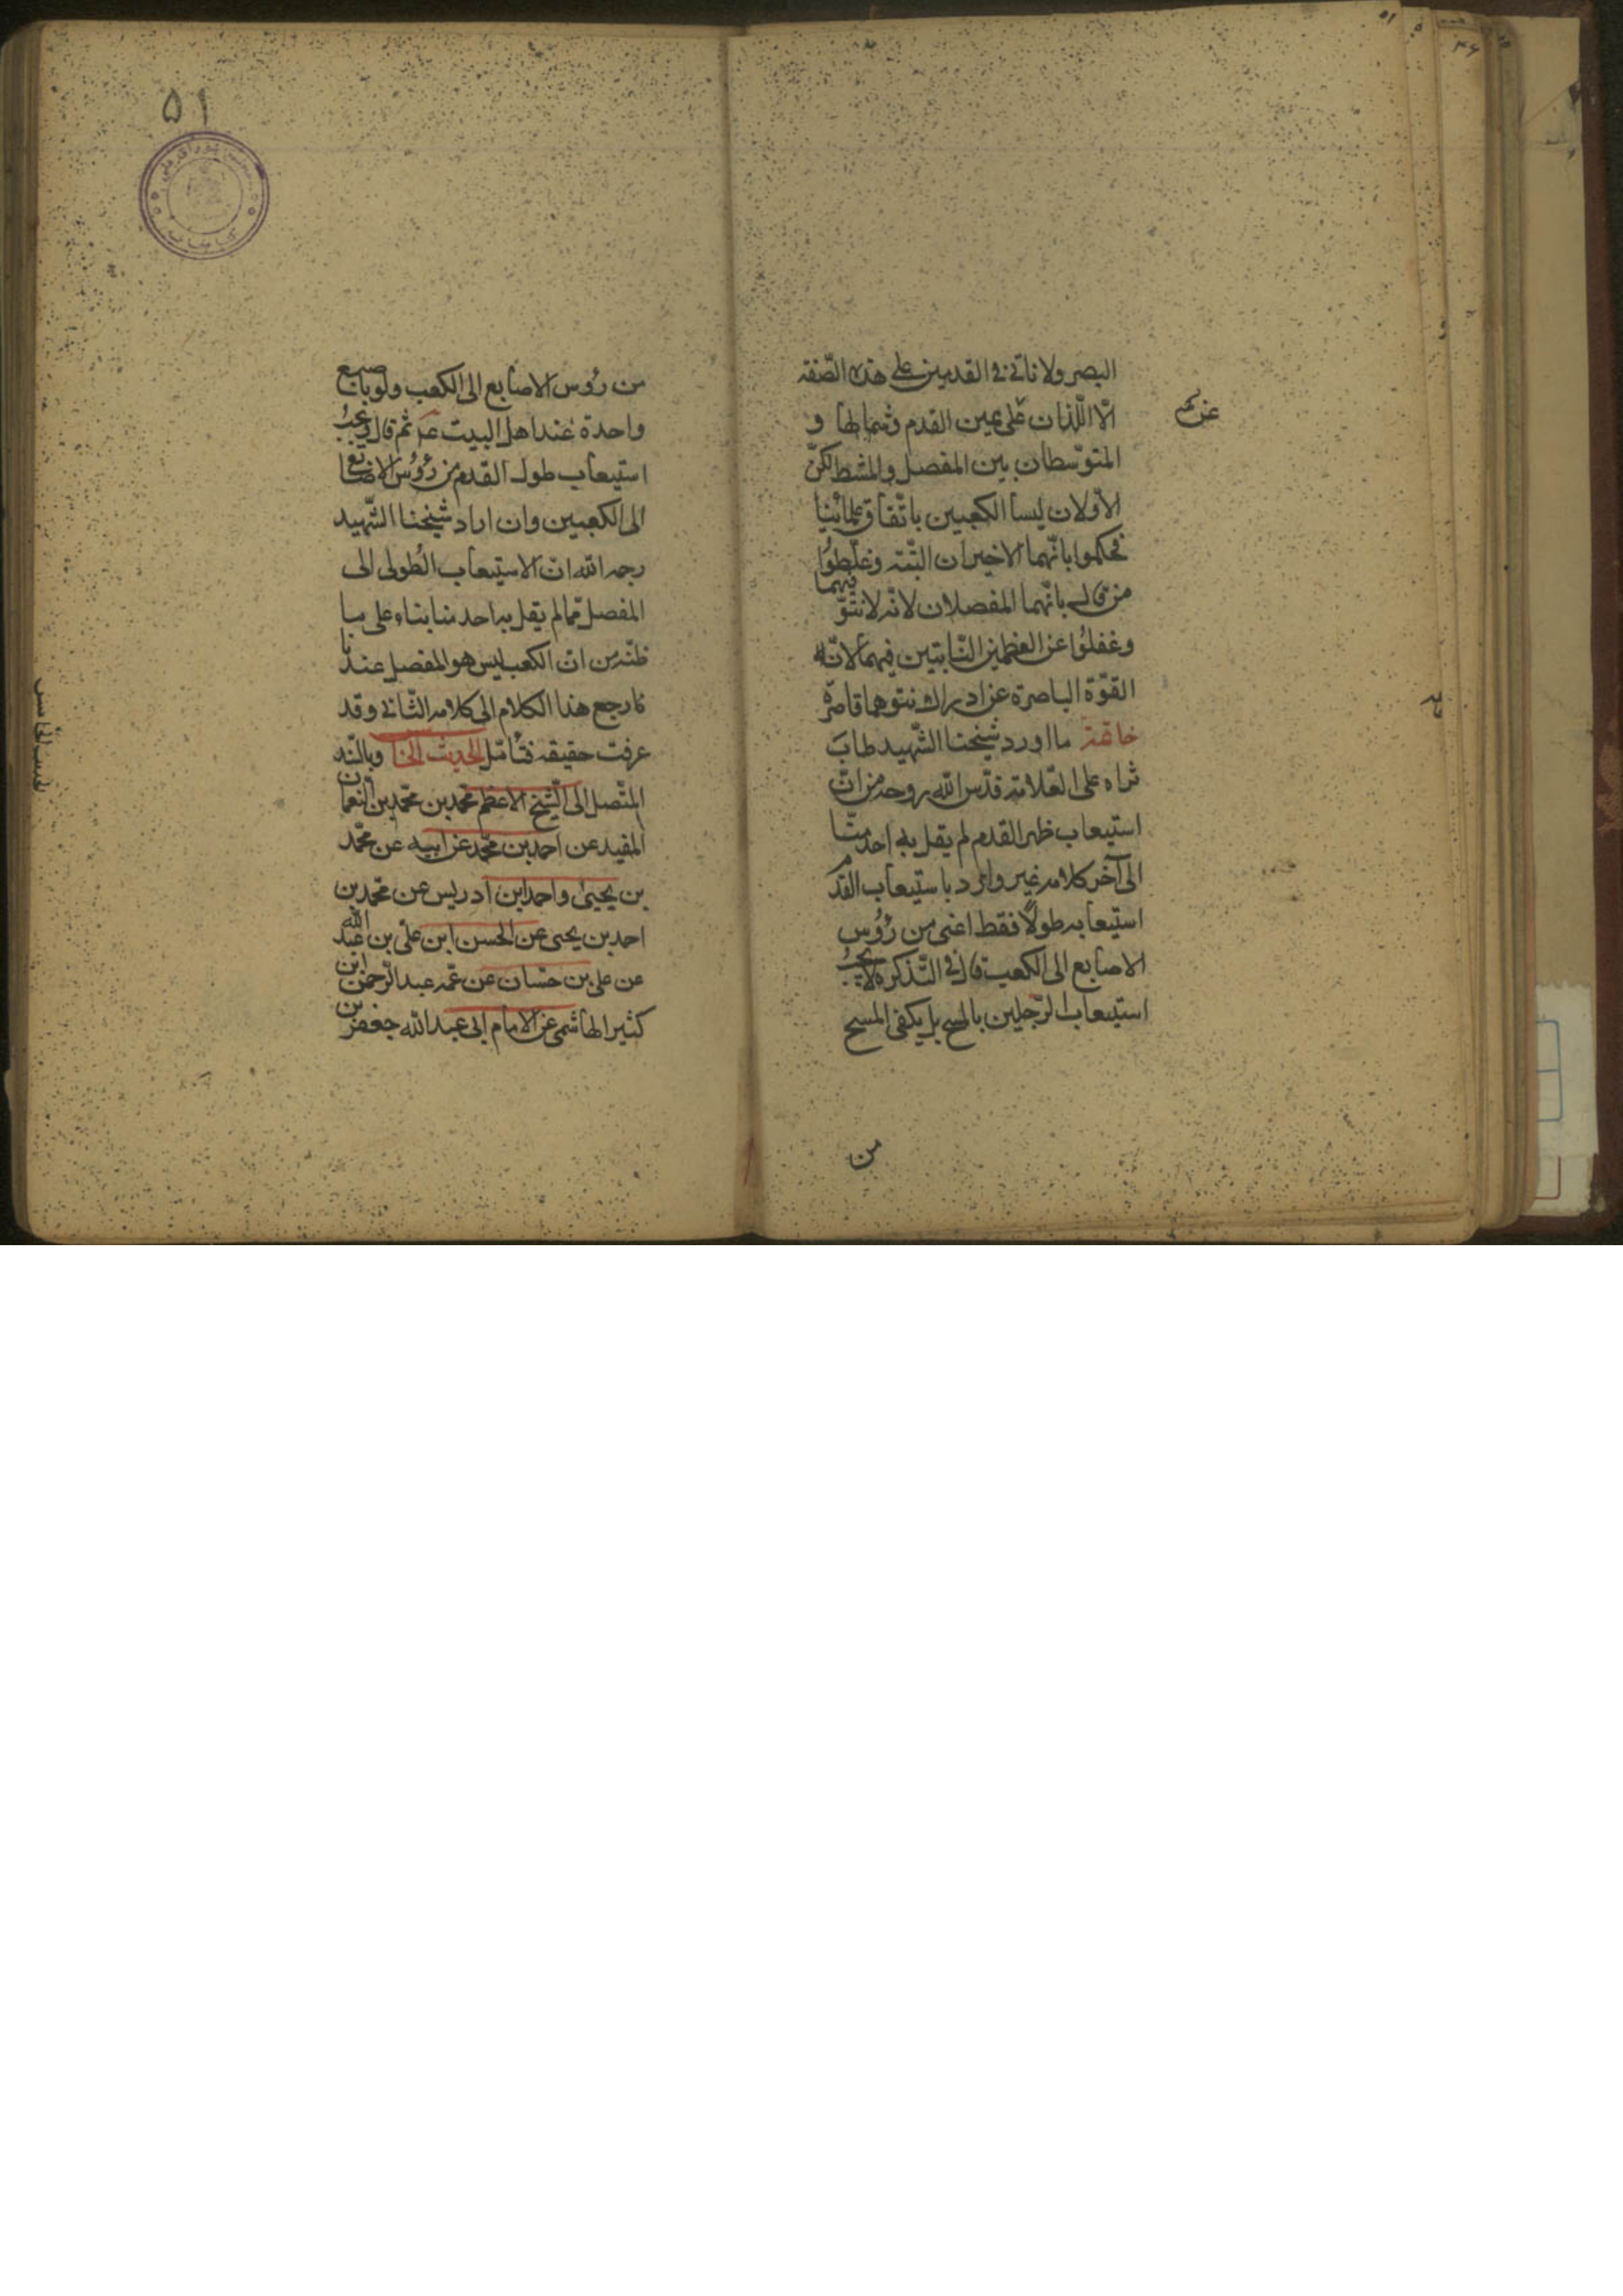 البصر ولا ناتی فی القدمین علی هذه الصّفة
الّا اللّذان علی یمین القدم وشمالها و
المتوسّطان بین المفصل والمشط لکنّ
الاوّلان لیسا الکعبین باتّفاق علمائنا
فحکموا بانّهما الاخیران البتّة وغلّطوُا
من قال بانّهما المفصلان لانّه لا نتوّ فیهما
وغفلوُا عن العظمین النّابتین فیهما لانّه
القوّة الباصرة عن ادراك نتوهما قاصرة
خاتمة ما اورد شیخنا الشّهید طاب
ثراه علی العّلامة قدّس الله روحه من انّ
استیعاب ظهر القدم لم یقل به احد منّا
الی آخر کلامه غیر وارد باستیعاب القدم
استیعابه طولًا فقط اعنی من رؤُس
الاصابع الی الکعب قال فی التّذکرة لا یجبُ
استیعاب الرّجلین بالمسح بل یکفی المسح
من
من رؤس الاصابع الی الکعب ولو باصبع
واحدة عند اهل البیت عم ثم قال ویجبُ
استیعاب طول القدم من رؤُس الاصابع
الی الکعبین وان اراد شیخنا الشّهید
رحمه الله انّ الاستیعاب الطُولی الی
المفصل ممّا لم یقل به احد منا بناء علی ما
ظنّه من انّ الکعب لیس هو المفصل عندنا
فارجع هذا الکلام الی کلامه الثّانی وقد
عرفت حقیقه فتُامّل الحدیث الخا وبالسّند
المتّصل الی الشّیخ الاعظم محمّد بن محمّد بن النعمان
المفید عن احمد بن محمّد عن ابیه عن محمّد
بن یحیی واحمد ابن ادریس عن محمد بن
احمد بن یحیی عن الحسن ابن علیّ بن عبد الله
عن علی بن حسّان عن عمّه عبد الرّحمن ابن
کثیر الهاشمی عن الامام ابی عبد الله جعفر بن
۵۱